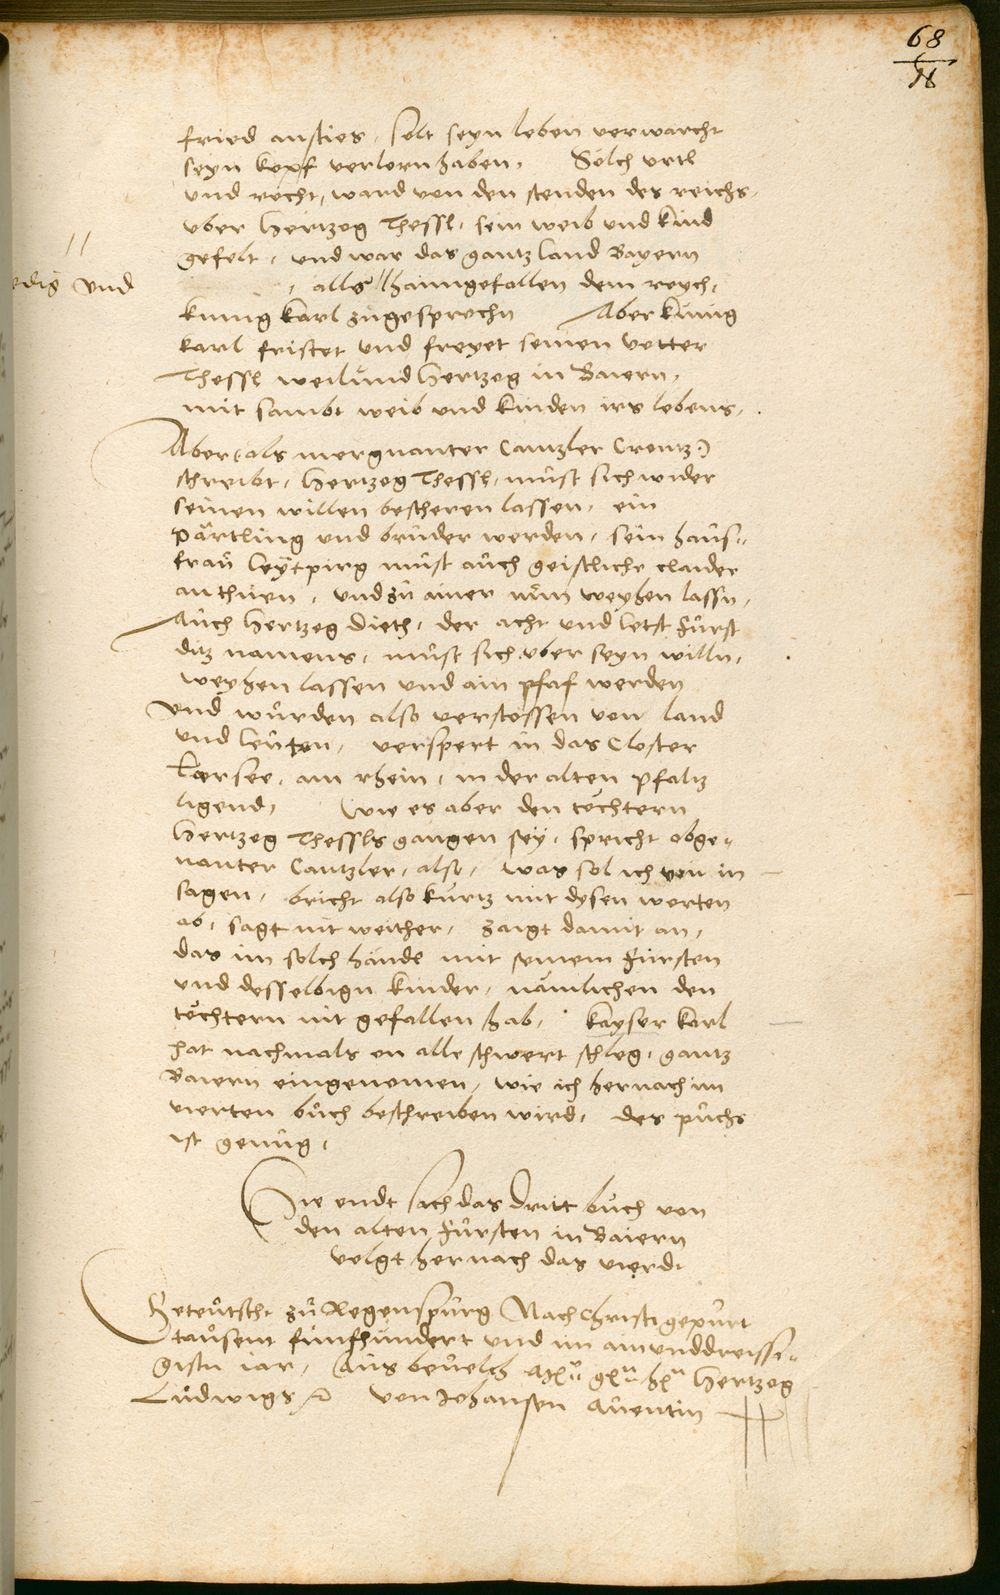 68
fried ansties, solt seyn leben verwarcht
seyn kopf verlorn haben, Solch vrtl
und recht, ward von den stenden des reichs,
uber Hertzog Thessl, sein weib und kind
gefelt, und war das gantz land Bayern
edig und
, alles haimgefallen dem reych,
kunig karl zůgesprochn Aber kunig
karl fristet und freyet seinen vetter
Thessl weilund Hertzog in Baiern,
mit sambt weib und kinden irs lebens,
Aber (als merguanter Cantzler Crentz)
schreibt, Hertzog Thessl, můst sich wider
seinen willen bescheren lassen, ein
pärtling und brůder werden, sein haus-
frau Leytpirg můst auch geistliche claider
anthuen, und zů ainer nun weyhen lassn,
Auch Hertzog Dieth, der acht und letst fürst
ditz namens, můst sich uber seyn willn,
weyhen lassen und ain pfaf werden
Und wůrden also verstossen von land
und leuten, verspert in das Closter
Lorsee, am rhein, in der alten pfaltz
ligend, Wie es aber den töchtern
Hertzog Thessls gangen sey, spricht obge-
nanter Cantzler, also, was sol ich von in
sagen, bricht also kurtz mit dysen worten
ab, sagt nit weither, zaigt damit an,
das im solch händl mit seinem fürsten
und desselbign kinder, nämlichen den
töchtern nit gefallen hab, kayser karl
hat nachmals on alle schwert schleg, gantz
Baiern eingenomen, wie ich hernach im
vierten bůch beschreiben wird, des půchs
ist genůg,
Hie endt sich das dritt bůch von
den alten fürsten in Baiern
volgt hernach das vierd.
Geteutscht zů Regenspurg Nach Christi gepurt
tausent fünfhundert und im ainunddreissi-
gistn iar, Aus bevelch Hertzog
Ludwigs von Johansen Auentin